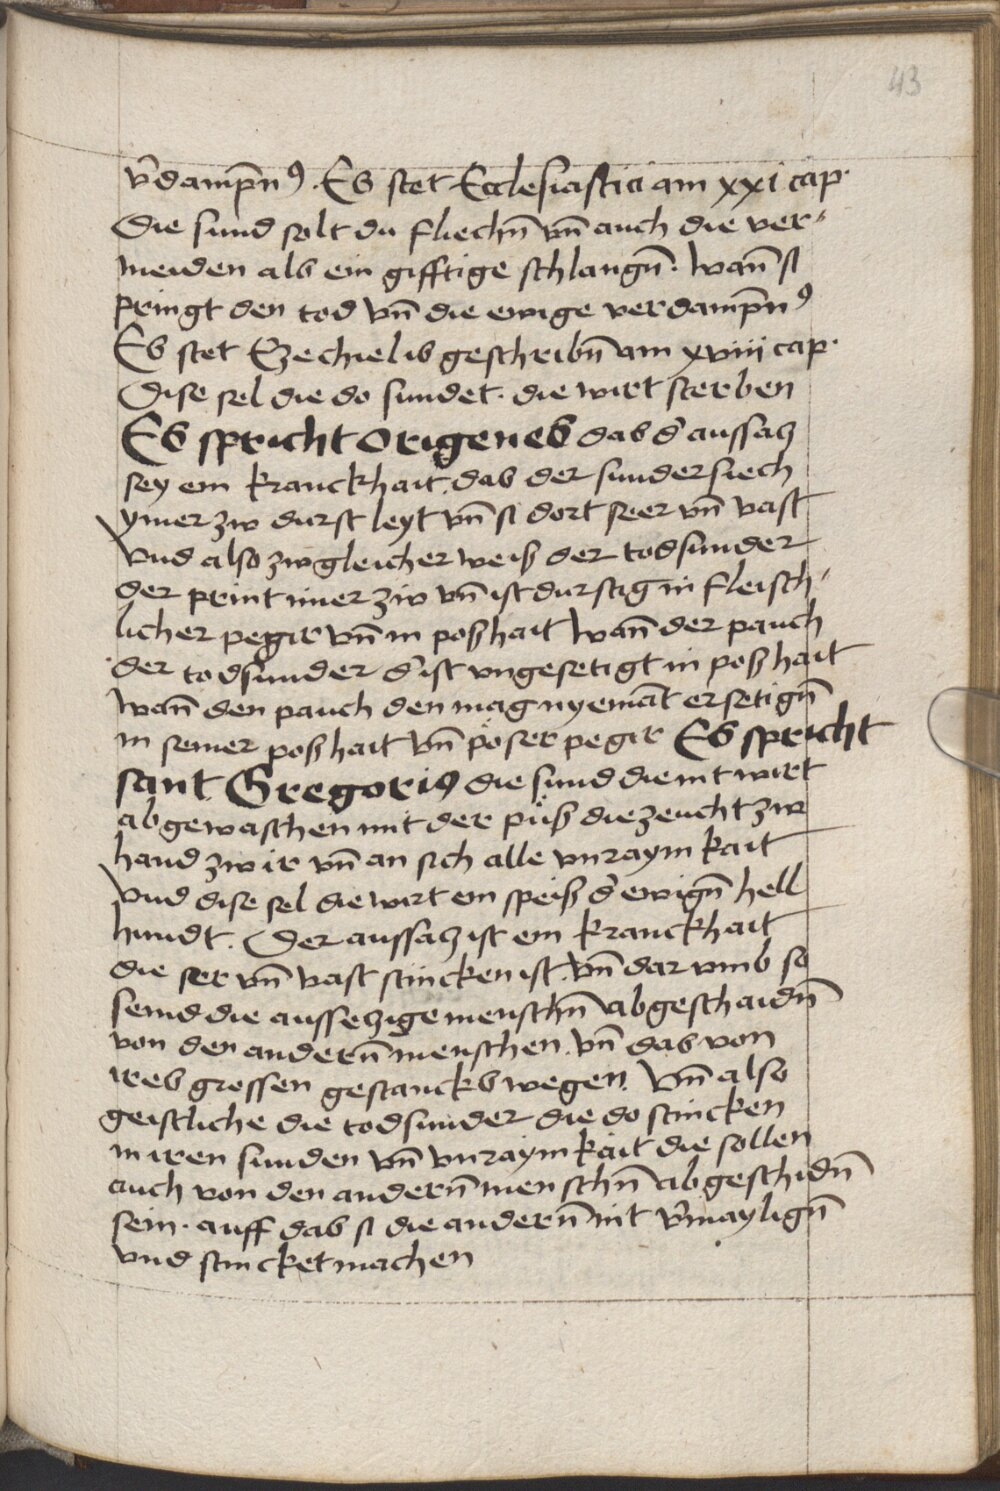 43
v̄dampn̄ꝰ. Es stet Ecclesiastici am xxi cap.
Die sund solt du fliechn̄ vn̄ auch die ver⸗
meiden als ein gifftige schlangn̄. wan̄ si
pringt den tod vn̄ die ewige verdampn̄ꝰ
Es stet Ezechielis geschribn̄ am xviii cap.
Dise sel die do sundet. die wirt sterben
Es spricht Origenes das d̄ aussacz
sey ein kranckhait. das der sunder siech
ymer zw durst leyt vn̄ si dort seer vn̄ vast
Vnd also zw gleicher weiß der todsunder
der print imer zw vn̄ ist durstig in fleisch⸗
licher pegir vn̄ in poßhait Wan̄ der pauch
der todsunder d̄ ist vngesetigt in poßhait
wan̄ den pauch den mag nyemāt ersetign̄
in seiner poßhait vn̄ pöser pegir Es spricht
sant Gregoriꝰ die sund die nit wirt
abgewaschen mit der püß die zeucht zw
hand zw ir vn̄ an sich alle vnraymkait
Vnd dise sel die wirt ein speiß d̄ ewign̄ hell
hundt. Der aussacz ist ein kranckhait
die ser vn̄ vast stincken ist. vn̄ dar vmb so
seind die aussetzige menschn̄ abgeschaidn̄
von den andern̄ menschen. vn̄ das von
ires grossen gestancks wegen. Vn̄ also
geistliche die todsunder die do stincken
in iren sunden vn̄ vnraymkait die sollen
auch von den andern̄ menschn̄ abgeschidn̄
sein. auff das si die andern̄ nit v̄maylign̄
vnd stincket machen